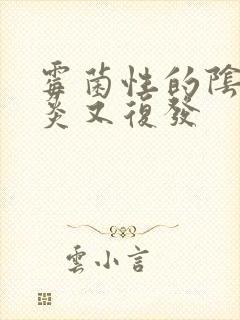 霉菌性的陰
炎又復發
雲小言